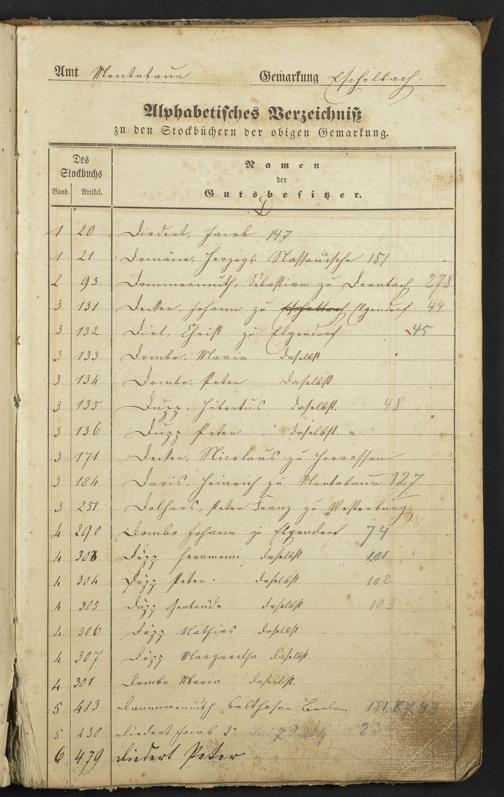 Amt Montabaur Gemarkung Eschelbach.
Alphabetisches Verzeichniß
zu den Stockbüchern der obigen Gemarkung.
Des Stockbuchs
Band. Artikel.
Namen
der
Gutsbesitzer.
D
1 20 Diedert, Jacob 147
1 21 Domäne, Herzogl. Nassauische 151
2 93 Dommermuth, Sebastian zu Dernbach 278
3 131 Decker, Johann zu Eschelbach Elgendorf 44
3 132 Diel, Christ zu Elgendorf 45
3 133 Dombo, Maria daselbst
3 134 Dombo, Peter daselbst
3 135 Düpp, Hubertus daselbst. 48
3 136 Düpp Peter daselbst.
3 171 Decker, Nicolaus zu Horressen
3 184 Davis, Heinrich zu Montabaur 127
3 251 Peter Franz zu Westerburg
4 290 Dombo Johann zu Elgendorf 74
4 303 Düpp Herrmann daselbst 101
4 304 Düpp Peter daselbst 102
4 305 Düpp Gertrude daselbst 103
4 306 Düpp Mathias daselbst
4 307 Düpp Margaretha daselbst
4 301 Dombo Maria daselbst
5 413 Dommermuth, Balthasar
5 430 Diedert Jacob 2r
6 479 Diedert Peter